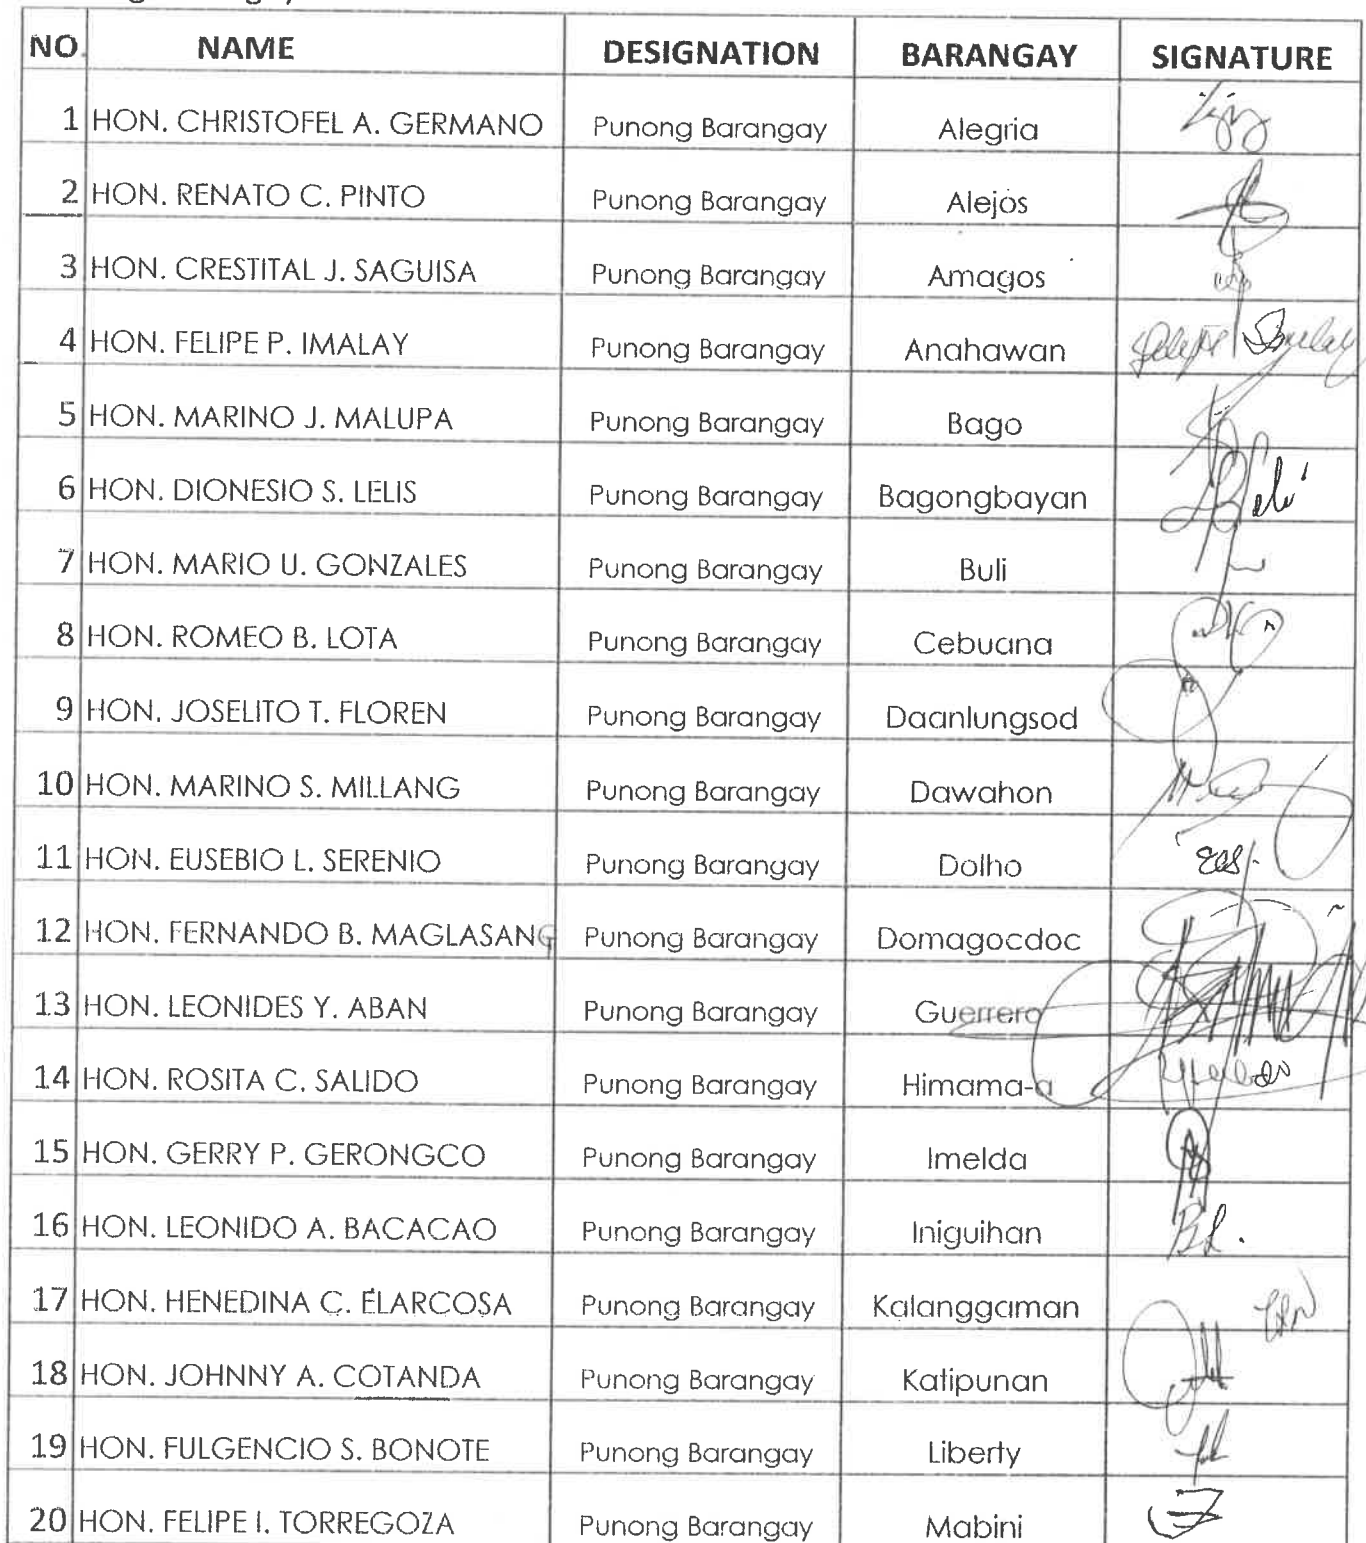 NO. NAME DESIGNATION BARANGAY SIGNATURE
1 HON. CHRISTOFEL A. GERMANO Punong Barangay Alegria
2 HON. RENATO C. PINTO Punong Barangay Alejos
3 HON. CRESTITAL J. SAGUISA Punong Barangay Amagos
4 HON. FELIPE P. IMALAY Punong Barangay Anahawan
5 HON. MARINO J. MALUPA Punong Barangay Bago
6 HON. DIONESIO S. LELIS Punong Barangay Bagongbayan
7 HON. MARIO U. GONZALES Punong Barangay Buli
8 HON. ROMEO B. LOTA Punong Barangay Cebuana
9 HON. JOSELITO T. FLOREN Punong Barangay Daanlungsod
10 HON. MARINO S. MILLANG Punong Barangay Dawahon
11 HON. EUSEBIO L. SERENIO Punong Barangay Dolho
12 HON. FERNANDO B. MAGLASANG Punong Barangay Domagocdoc
13 HON. LEONIDES Y. ABAN Punong Barangay Guerrero
14 HON. ROSITA C. SALIDO Punong Barangay Himama-a
15 HON. GERRY P. GERONGCO Punong Barangay Imelda
16 HON. LEONIDO A. BACACAO Punong Barangay Iniguihan
17 HON. HENEDINA C. ELARCOSA Punong Barangay Kalanggaman
18 HON. JOHNNY A. COTANDA Punong Barangay Katipunan
19 HON. FULGENCIO S. BONOTE Punong Barangay Liberty
20 HON. FELIPE I. TORREGOZA Punong Barangay Mabini